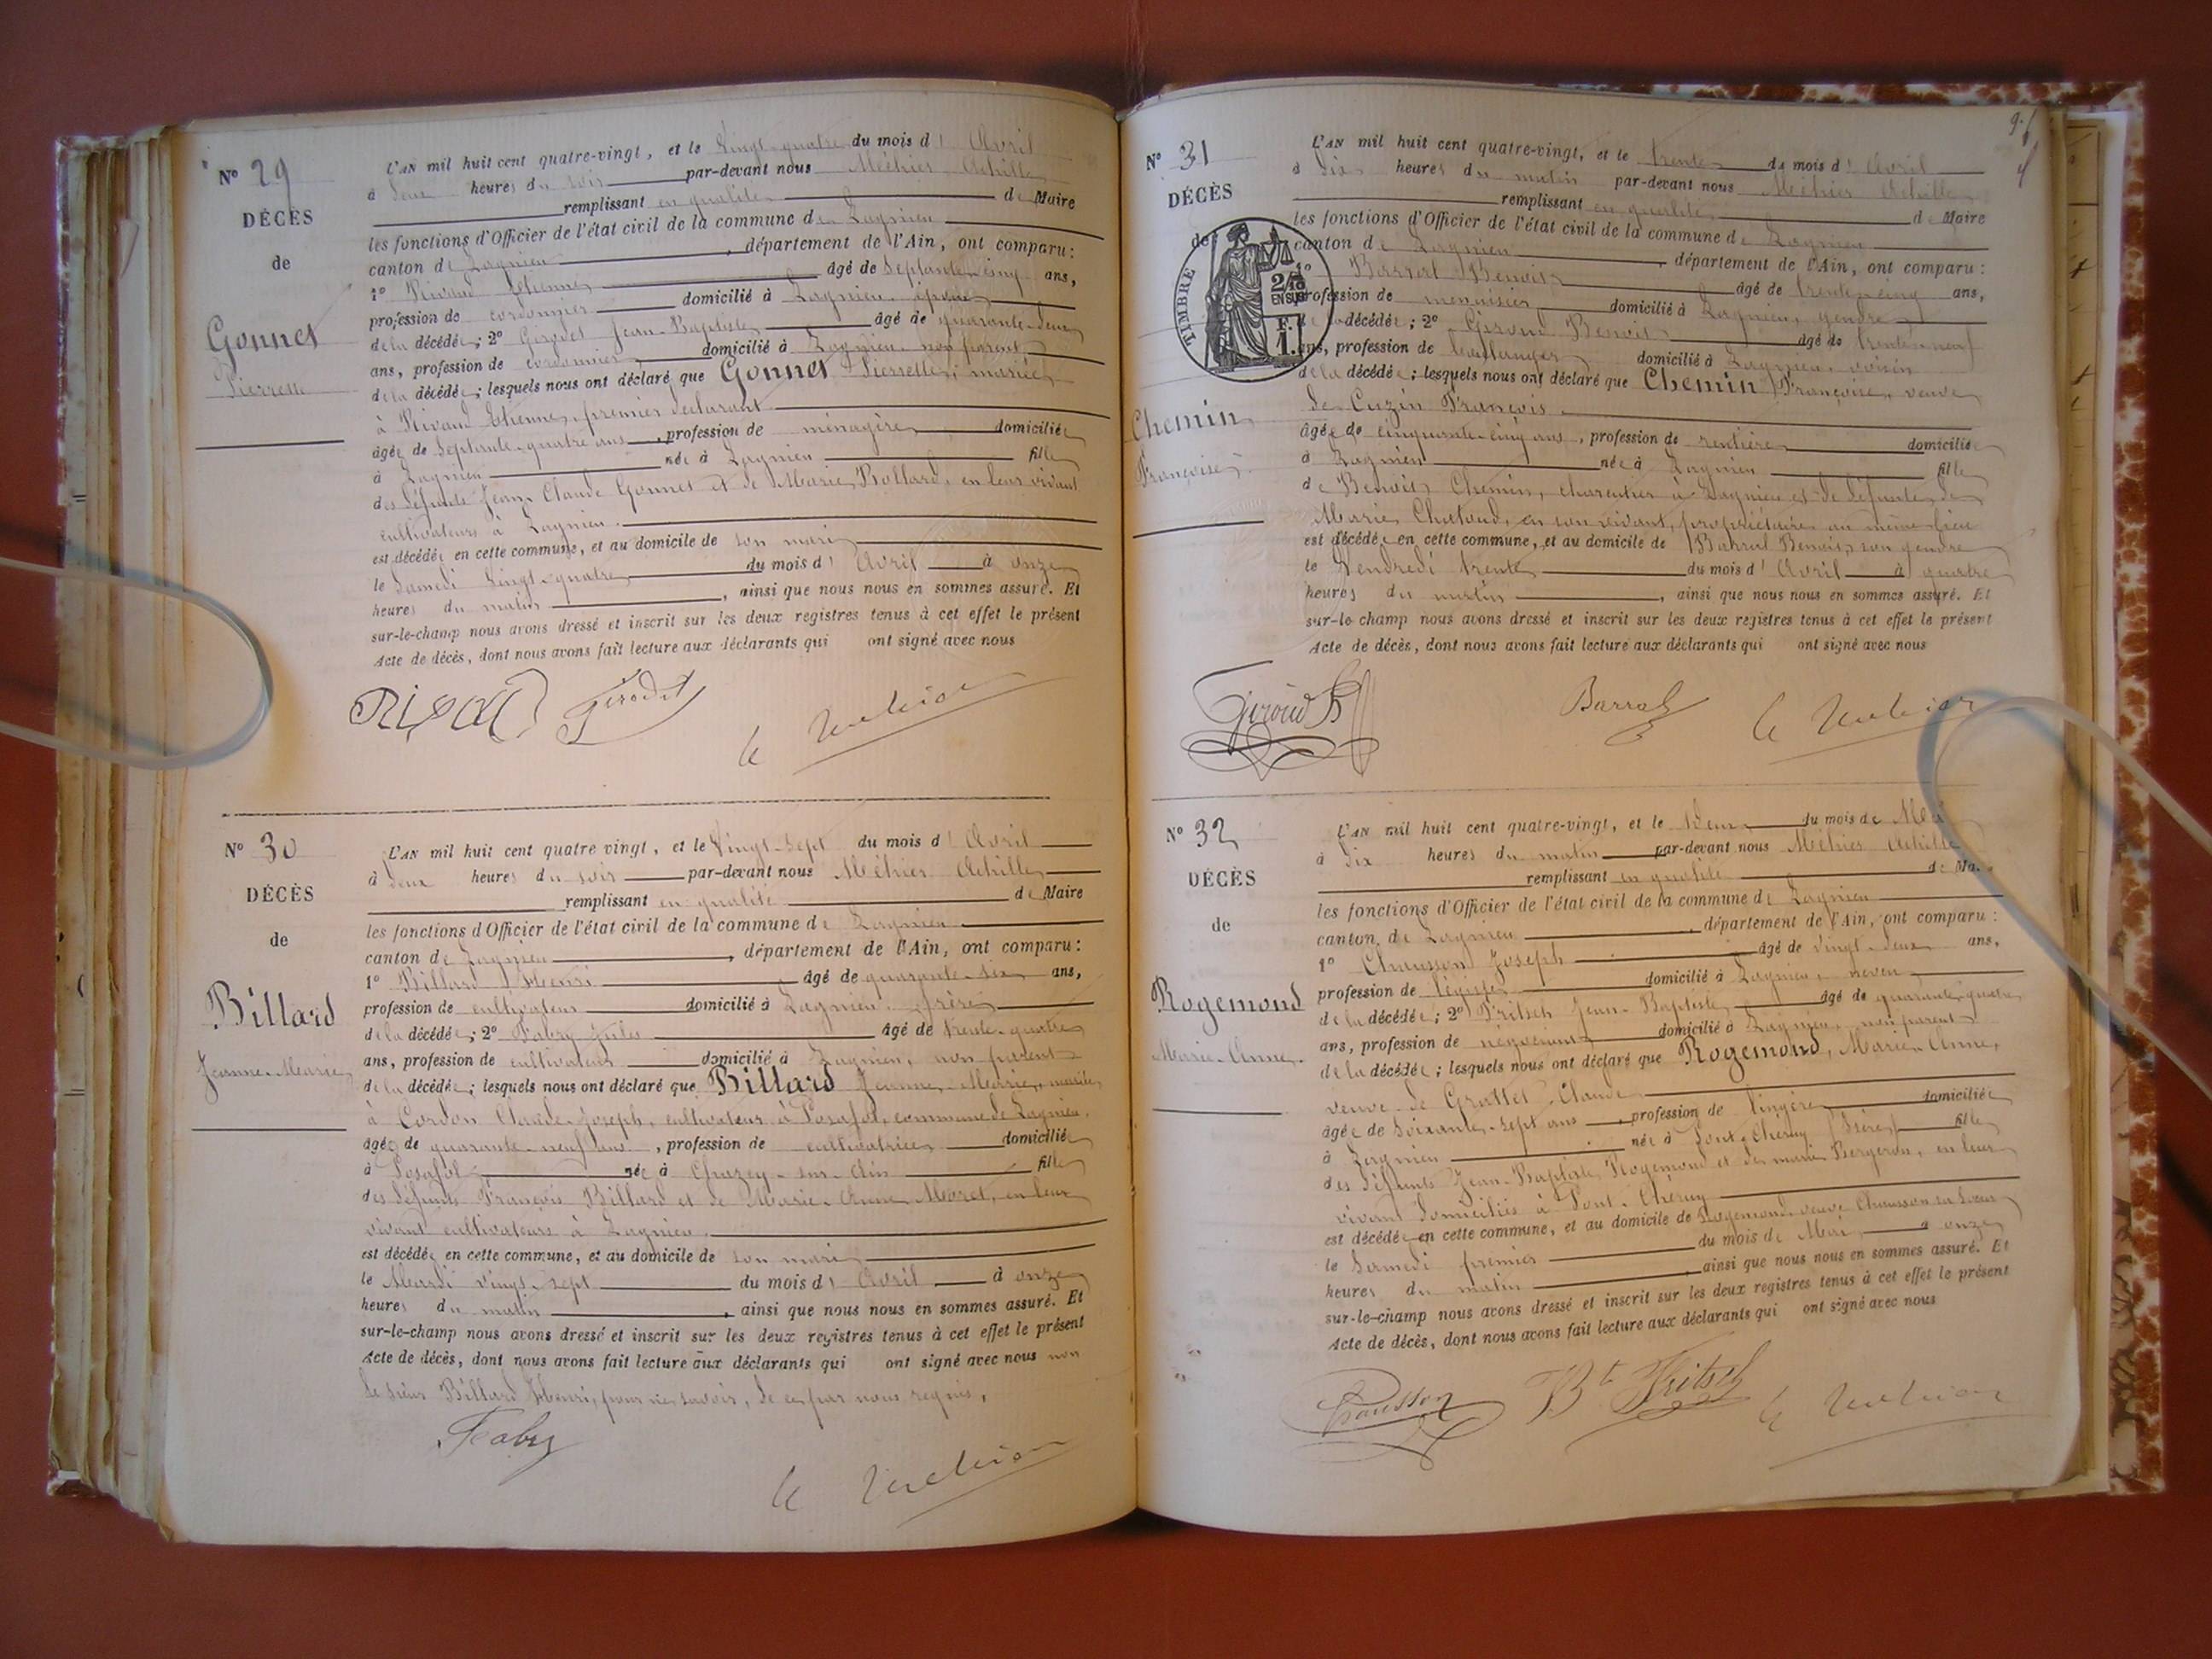 N° 29
DÉCÈS
de
Gonnet
Pierrette
L'AN mil huit cent quatre-vingt, et le vingt-quatre du mois d'Avril
à deux heures du soir par-devant nous Méthier Achille
remplissant en qualité de Maire
les fonctions d'Officier de l'état civil de la commune de Lagnieu
canton de Lagnieu, département de l'Ain, ont comparu :
1° Rivaud Etienne âgé de Septante-cinq ans,
profession de cordonnier domicilié à Lagnieu, époux
de la décédée ; 2° Girodet Jean-Baptiste âgé de quarante-deux
ans, profession de cordonnier domicilié à Lagnieu, non parent
de la décédée ; lesquels nous ont déclaré que Gonnet Pierrette, mariée
à Rivaud Etienne, premier déclarant
âgée de Septante-quatre ans, profession de ménagère domiciliée
à Lagnieu née à Lagnieu fille
des défunts Jean-Claude Gonnet et de Marie Rollard, en leur vivant
cultivateurs à Lagnieu.
est décédée en cette commune, et au domicile de son mari
le Samedi vingt-quatre du mois d'Avril à onze
heures du matin, ainsi que nous nous en sommes assuré. Et
sur-le-champ nous avons dressé et inscrit sur les deux registres tenus à cet effet le présent
Acte de décès, dont nous avons fait lecture aux déclarants qui ont signé avec nous
Girodet
N° 30
DÉCÈS
de
Billard
Jeanne-Marie
L'AN mil huit cent quatre vingt, et le vingt-sept du mois d'Avril
à deux heures du soir par-devant nous Méthier Achille
remplissant en qualité de Maire
les fonctions d'Officier de l'état civil de la commune de Lagnieu
canton de Lagnieu, département de l'Ain, ont comparu :
1° Billard Henri âgé de quarante-six ans,
profession de cultivateur domicilié à Lagnieu, frère
de la décédée ; 2° Fabry Jules âgé de trente-quatre
ans, profession de cultivateur domicilié à Lagnieu, non parent
de la décédée ; lesquels nous ont déclaré que Billard Jeanne-Marie, mariée
à Cordon Claude-Joseph, cultivateur à Posafol, commune de Lagnieu.
âgée de quarante-neuf ans, profession de cultivatrice domiciliée
à Posafol née à Chazey-sur-Ain fille
des défunts François Billard et de Marie-Anne Moret, en leur
vivant cultivateurs à Lagnieu.
est décédée en cette commune, et au domicile de son mari
le Mardi vingt-sept du mois d'Avril à onze
heures du matin, ainsi que nous nous en sommes assuré. Et
sur-le-champ nous avons dressé et inscrit sur les deux registres tenus à cet effet le présent
Acte de décès, dont nous avons fait lecture aux déclarants qui ont signé avec nous non
le sieur Billard Henri, pour ne savoir, de ce par nous requis,
Fabry
N° 31
DÉCÈS
de
TIMBRE
2/10
EN SUS
F.
1.
Chemin
Françoise
L'AN mil huit cent quatre-vingt, et le trente du mois d'Avril
à dix heures du matin par-devant nous Méthier Achille
remplissant en qualité de Maire
les fonctions d'Officier de l'état civil de la commune de Lagnieu
canton de Lagnieu, département de l'Ain, ont comparu :
1° Barral Benoit âgé de trente-cinq ans,
profession de menuisier domicilié à Lagnieu, gendre
de la décédée ; 2° Giroud Benoit âgé de trente-neuf
ans, profession de boulanger domicilié à Lagnieu, voisin
de la décédée ; lesquels nous ont déclaré que Chemin Françoise, veuve
de Cuzin François
âgée de cinquante-cinq ans, profession de rentière domiciliée
à Lagnieu née à Lagnieu fille
de Benoit Chemin, charpentier à Lagnieu et de défunte de
Marie Chatoud, en son vivant, propriétaire au même lieu
est décédée en cette commune, et au domicile de Barral Benoit, son gendre
le Vendredi trente du mois d'Avril à quatre
heures du matin, ainsi que nous nous en sommes assuré. Et
sur-le-champ nous avons dressé et inscrit sur les deux registres tenus à cet effet le présent
Acte de décès, dont nous avons fait lecture aux déclarants qui ont signé avec nous
Giroud B
Barral
N° 32
DÉCÈS
de
Rogemond
Marie-Anne
L'AN mil huit cent quatre-vingt, et le deux du mois de Mai
à dix heures du matin par-devant nous Méthier Achille
remplissant en qualité de Ma
les fonctions d'Officier de l'état civil de la commune de Lagnieu
canton de Lagnieu, département de l'Ain, ont comparu :
1° Chausson Joseph âgé de vingt-deux ans,
profession de domicilié à Lagnieu, neveu
de la décédée ; 2° Fritsch Jean-Baptiste âgé de quarante-quatre
ans, profession de négociant domicilié à Lagnieu, non parent
de la décédée ; lesquels nous ont déclaré que Rogemond, Marie-Anne,
veuve de Grattet Claude
âgée de Soixante-sept ans, profession de lingère domiciliée
à Lagnieu née à Pont-Chéruy (Isère) fille
des défunts Jean-Baptiste Rogemond et de marie Bergeron, en leur
vivant domiciliés à Pont-Chéruy
est décédée en cette commune, et au domicile de Rogemond veuve Chausson sa sœur
le Samedi premier du mois de Mai à onze
heures du matin, ainsi que nous nous en sommes assuré. Et
sur-le-champ nous avons dressé et inscrit sur les deux registres tenus à cet effet le présent
Acte de décès, dont nous avons fait lecture aux déclarants qui ont signé avec nous
Chausson
Bt Fritsch